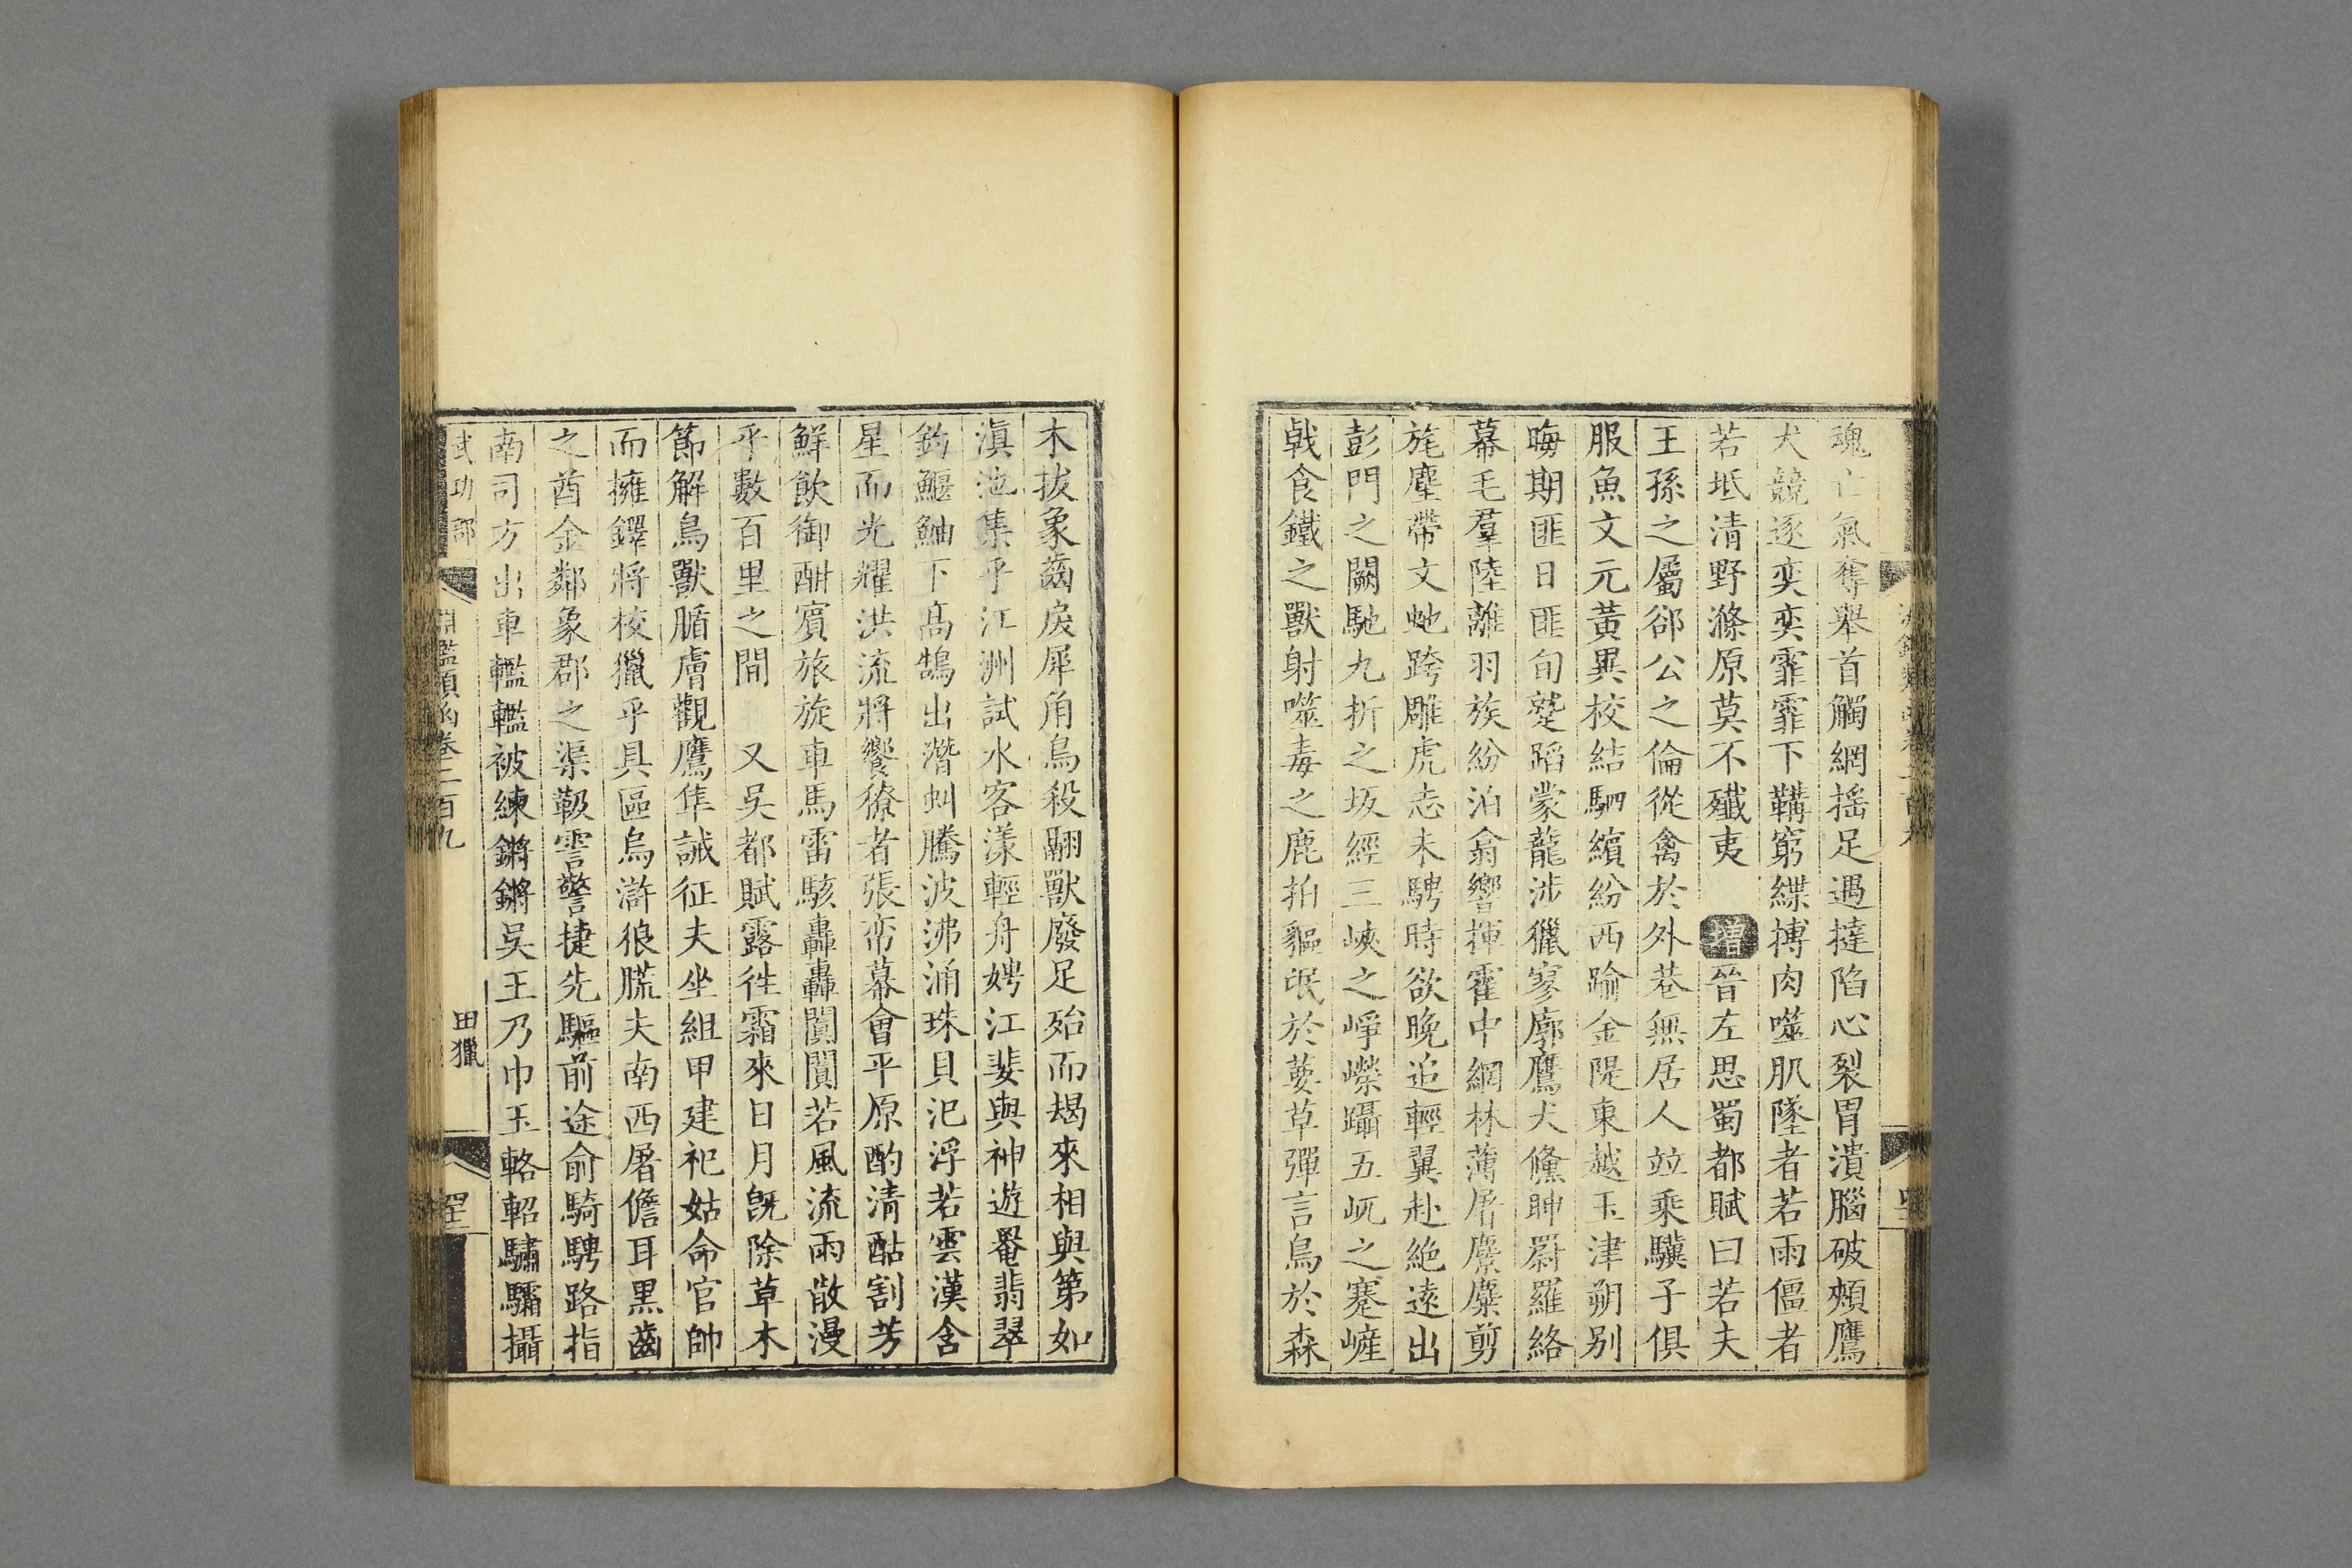 魂亡氣奪舉首觸網摇足遇撻陷心裂胃潰腦破頰鷹
犬競逐奕奕霏霏下韝窮緤搏肉噬肌墜者若雨僵者
若坻清野滌原莫不殲夷 增晉左思蜀都賦曰若夫
王孫之屬郤公之倫從禽於外巷無居人竝乘驥子俱
服魚文元黄異校結駟繽紛西踰金隄東越玉津朔别
晦期匪日匪旬蹵蹈蒙蘢涉獵寥廓鷹犬儵眒罻羅絡
幕毛羣陸離羽族紛泊翕響揮霍中網林薄屠麖麋剪
旄麈帶文虵跨雕虎志未騁時欲晚追輕翼赴絶遠出
彭門之闕馳九折之坂經三峽之崢嶸躡五屼之蹇嵼
戟食鐵之獸射噬毒之鹿拍貙氓於葽草彈言鳥於森
木拔象齒戾犀角鳥殺翮獸廢足殆而朅來相與第如
滇池集乎江洲試水客漾輕舟娉江婓與神遊罨翡翠
釣鰋鮋下高鵠出潛虯騰波沸涌珠貝汜浮若雲漢含
星而光耀洪流將饗獠者張帟幕會平原酌清酤割芳
鮮飲御酣賓旅旋車馬雷駭轟轟闐闐若風流雨散漫
乎數百里之間 又吳都賦露徃霜來日月旣除草木
節解鳥獸腯膚觀鷹隼誡征夫坐組甲建祀姑命官帥
而擁鐸將校獵乎具區烏滸狼㬻夫南西屠儋耳黒齒
之酋金鄰象郡之渠䩯霅警捷先驅前途俞騎騁路指
南司方出車轞轞被練鏘鏘吳王乃巾玉輅軺驌驦攝
武功部 淵鑑類函卷二百九 田獵